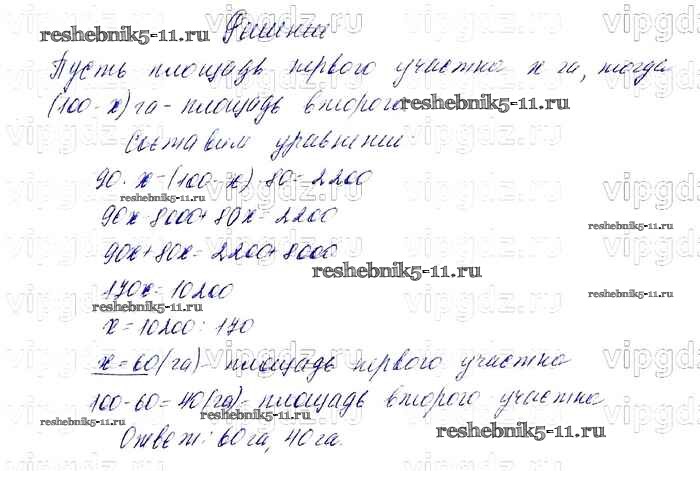 reshebnik5-11.ru Решение
Пусть площадь первого участка x га, тогда
(100-x) га - площадь второго reshebnik5-11.ru
Составим уравнение:
90·x-(100-x)·80=2200
reshebnik5-11.ru
90x-8000+80x=2200
reshebnik5-11.ru
90x+80x=2200+8000
reshebnik5-11.ru
170x=10200
reshebnik5-11.ru
reshebnik5-11.ru
x=10200:170
x=60(га)- площадь первого участка
100-60=40(га)- площадь второго участка
reshebnik5-11.ru
reshebnik5-11.ru
Ответ: 60га, 40га.
reshebnik5-11.ru
vipgdz.ru